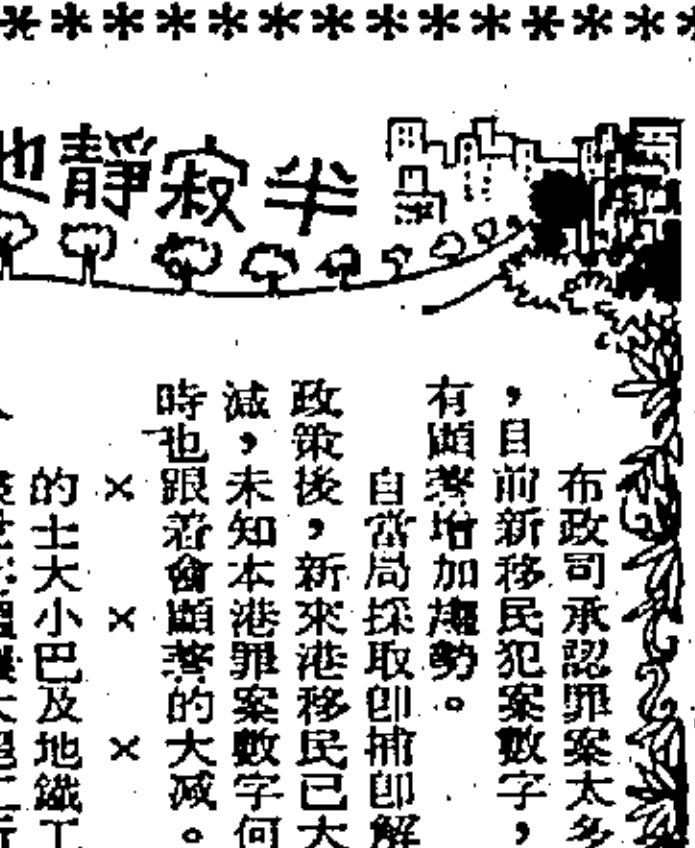 半寂靜地
布政司承認罪案太多
，目前新移民犯案數字，
有顯著增加趨勢。
自當局採取卽捕卽解
政策後，新來港移民已大
減，未知本港罪案數字何
時也跟着會顯著的大减。
× × ×
的士大小巴及地鐵工